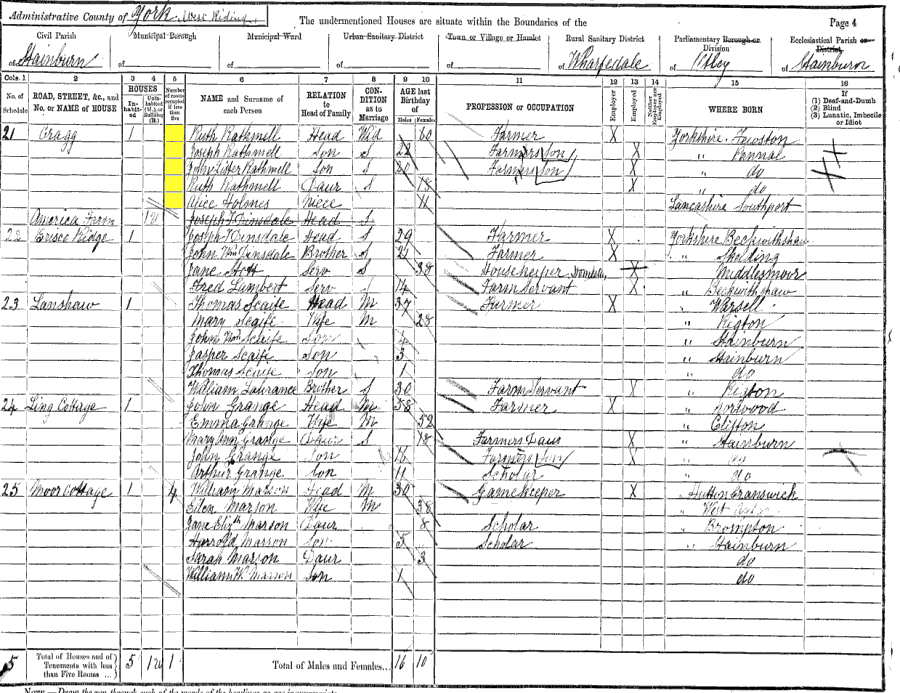 Administrative County of York. West Riding
The undermentioned Houses are situate within the Boundaries of the
Page 4
Civil Parish of Stainburn
Municipal Borough of
Municipal Ward of
Urban Sanitary District of
Town or Village or Hamlet of
Rural Sanitary District of Wharfedale
Parliamentary Borough or Division of Otley
Ecclesiastical Parish or District of Stainburn
Cols. 1 2 3 4 5 6 7 8 9 10 11 12 13 14 15 16
No. of Schedule
ROAD, STREET, &c., and No. or NAME of HOUSE
HOUSES
In-habited
Unin-habited (U.), or Building (B.)
Number of rooms occupied if less than five
NAME and Surname of each Person
RELATION to Head of Family
CON-DITION as to Marriage
AGE last Birthday of
Males Females
PROFESSION or OCCUPATION
Employer
Employed
Neither Employer nor Employed
WHERE BORN
If (1) Deaf-and-Dumb (2) Blind (3) Lunatic, Imbecile or Idiot
21 Cragg 1 Ruth Rathmell Head Wid Farmer X Yorkshire Fewston
Joseph Rathmell Son S 22 Farmers Son X " Pannal
John Lister Rathmell Son S 20 Farmers Son X " do
Ruth Rathmell Daur S 18 X " do
Alice Holmes Niece 11 Lancashire Southport
America Farm 1 u Joseph T Dinsdale Head S
22 Briscoe Ridge 1 Joseph T Dinsdale Head S 29 Farmer X Yorkshire Beckwithshaw
John Wm Dinsdale Brother S 21 Farmer X "
Jane Stott Serv S 38 Housekeeper Domestic X " Middlesmoor
Fred Lambert Serv 14 Farm Servant X " Beckwithshaw
23 Lanshaw 1 Thomas Scaife Head M 37 Farmer X " Warsell
Mary Scaife Wife M 28 " Rigton
John Wm Scaife Son 4 " Stainburn
Jasper Scaife Son 3 " Stainburn
Thomas Scaife Son 1 " do
William Laurance Brother S 30 Farm Servant X " Rigton
24 Ling Cottage 1 John Grange Head M 53 Farmer X " Norwood
Emma Grange Wife M 52 " Clifton
Mary Ann Grange Daur S 18 Farmers Daur X " Stainburn
John Grange Son Farmers Son X " do
Arthur Grange Son 11 Scholar " do
25 Moor Cottage 1 4 William Marson Head M 30 Gamekeeper X " Hutton Cranswick
Ellen Marson Wife M 38 "
Jane Elizth Marson Daur 8 Scholar " Brompton
Harrold Marson Son 5 Scholar " Stainburn
Sarah Marson Daur 3 do
William W. Marson Son 1 do
5 Total of Houses and of Tenements with less than Five Rooms ... 5 1 u 1
Total of Males and Females... 16 10